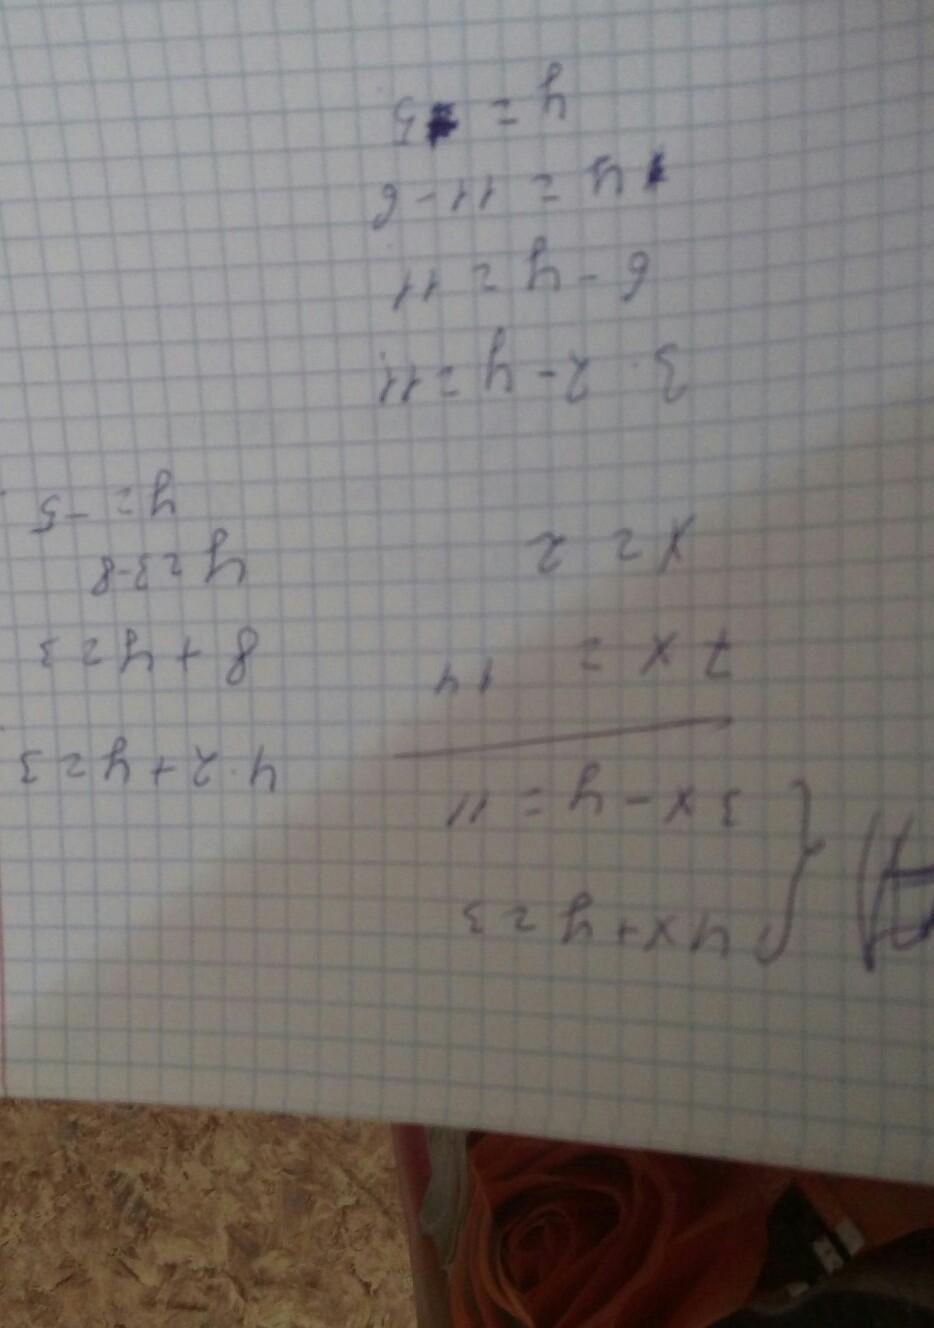 А)
4x+y=3
3x-y=11
7x = 14
x = 2
4·2+y=3
8+y=3
y=3-8
y=-5
3·2-y=11
6-y=11
y=11-6
y=5